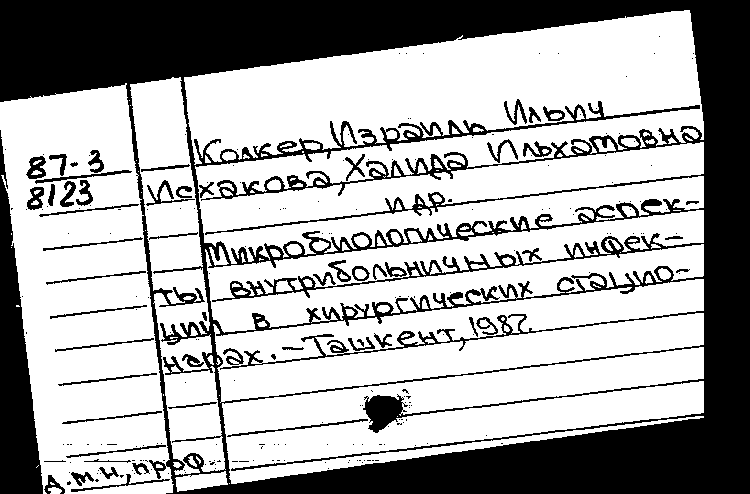 Колкер, Израиль Ильич
87-3
8123
Исхакова, Халида Ильхатовна
и др.
Микробиологические аспек-
ты внутрибольничных инфек-
ций в хирургических стацио-
нарах. – Ташкент, 1987.
д.м.н., проф.